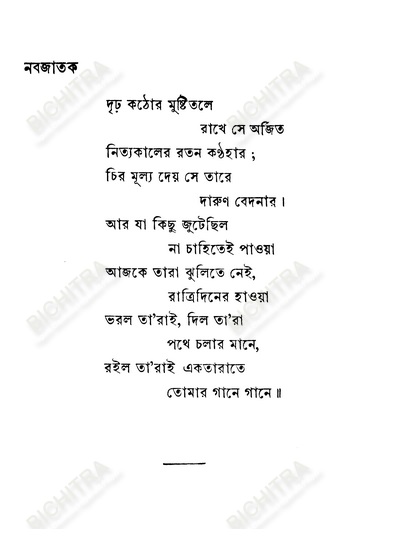 নবজাতক
দৃঢ় কঠোর মুষ্টিতলে
রাখে সে অর্জিত
নিত্যকালের রতন কণ্ঠহার ;
চির মূল্য দেয় সে তারে
দারুণ বেদনার ।
আর যা কিছু জুটেছিল
না চাহিতেই পাওয়া
আজকে তারা ঝুলিতে নেই,
রাত্রিদিনের হাওয়া
ভরল তা'রাই, দিল তা'রা
পথে চলার মানে,
রইল তা'রাই একতারাতে
তোমার গানে গানে ॥
BICHITRA
BICHITRA
BICHITRA
BICHITRA
BICHITRA
BICHITRA
BICHITRA
BICHITRA